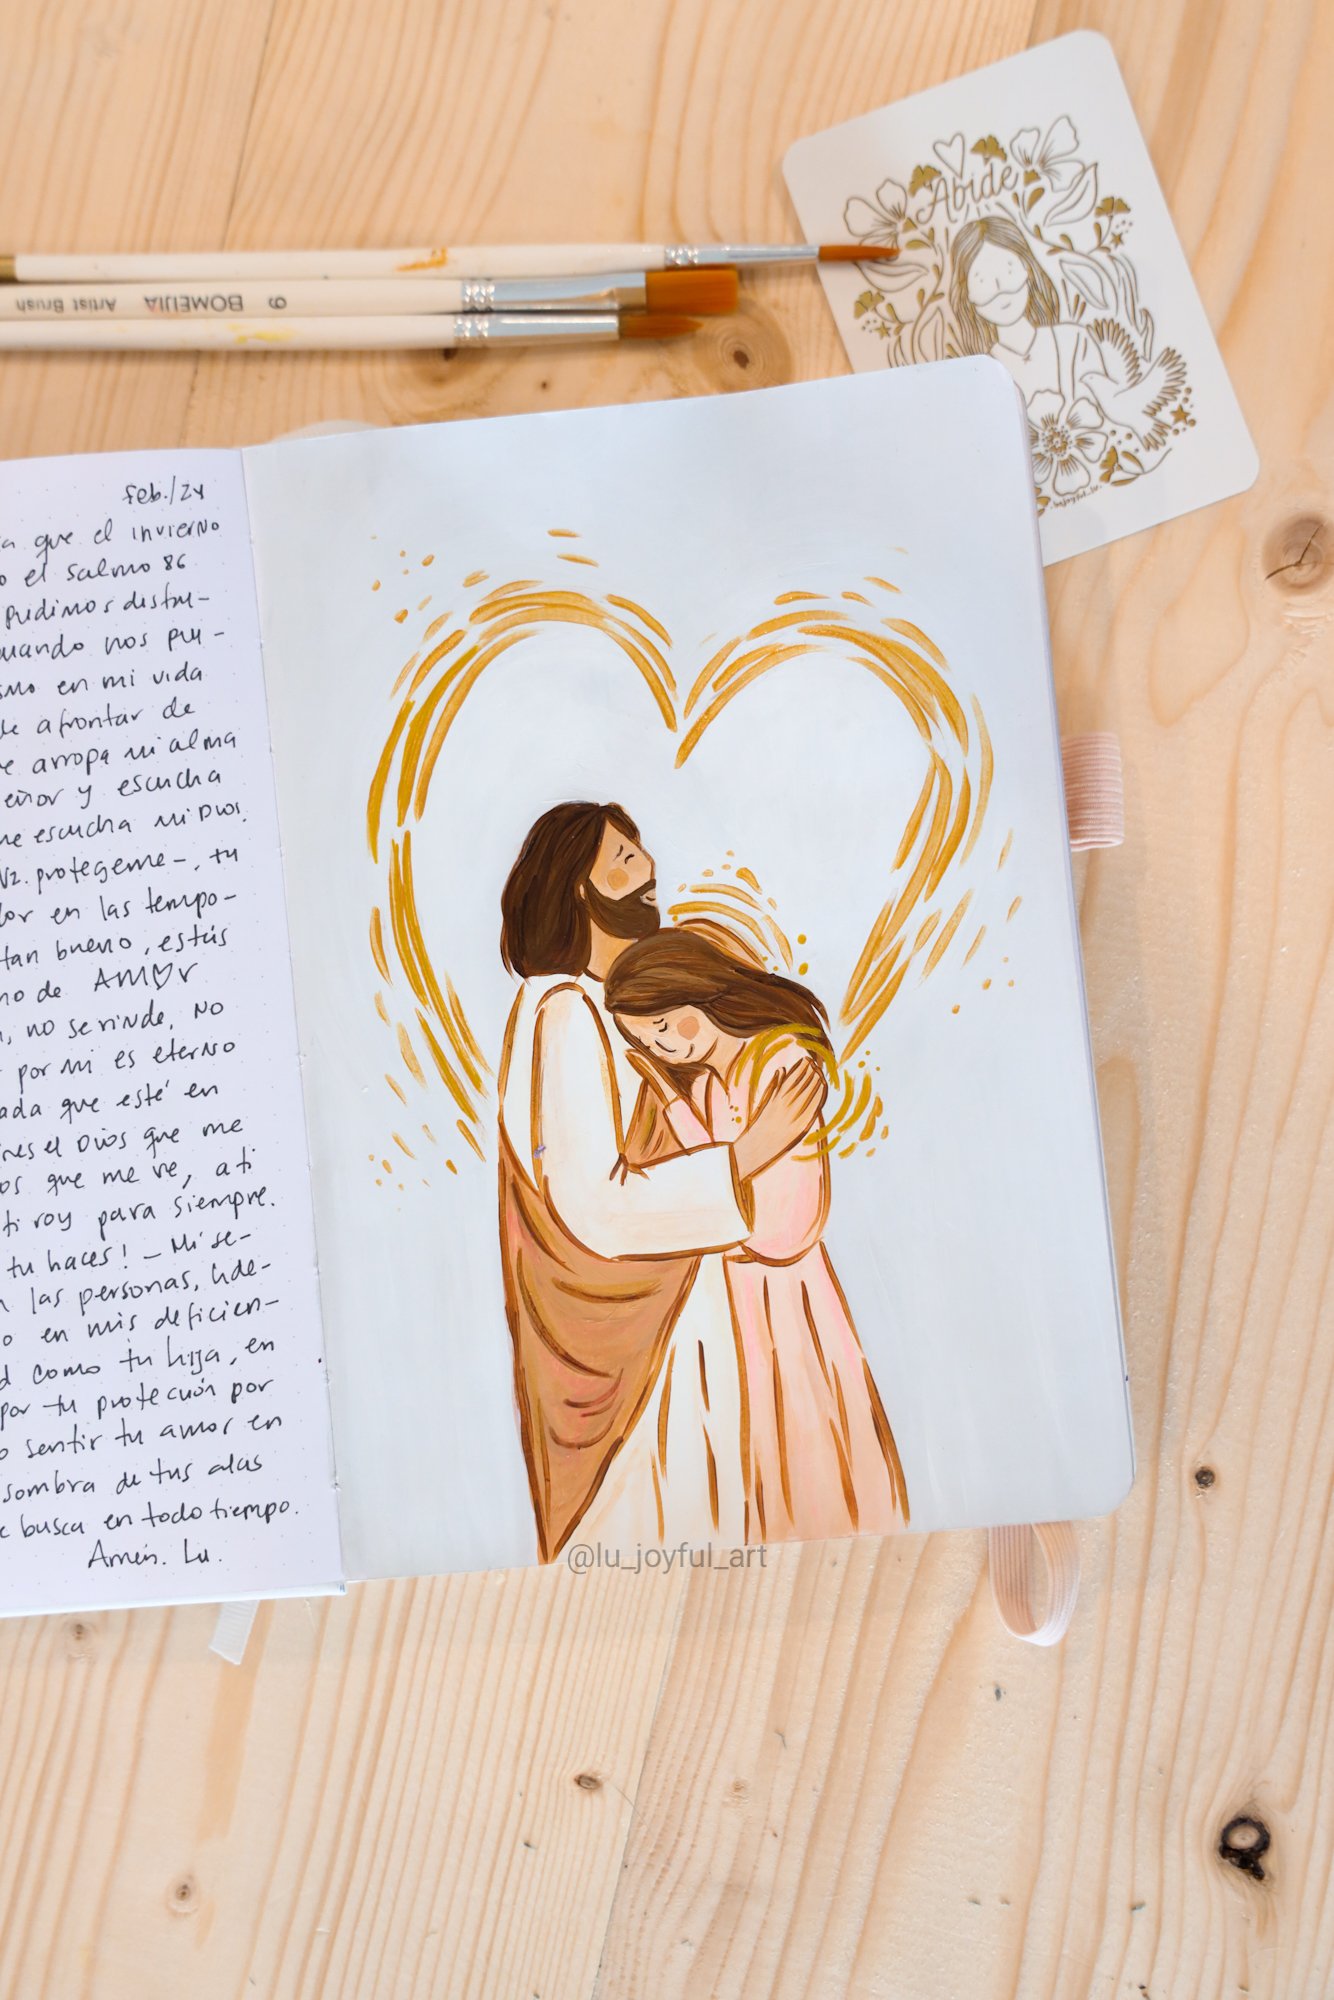 Abide
BOMEIJIA Artist Brush 6
feb./24
que el invierno
el Salmo 86
pudimos disfru-
nos pu-
en mi vida
afrontar de
arropa mi alma
y escucha
me escucha mi Dios.
protegeme-, tu
en las tempo-
tan bueno, estás
no de AMOR
, no se rinde, No
por mi es eterno
ada que esté en
eres el Dios que me
os que me ve, a ti
ti voy para siempre.
tu haces! - Mi se-
las personas, lide-
o en mis deficien-
d como tu hija, en
por tu protección por
o sentir tu amor en
sombra de tus alas
e busca en todo tiempo.
Amén. Lu.
@lu_joyful_art